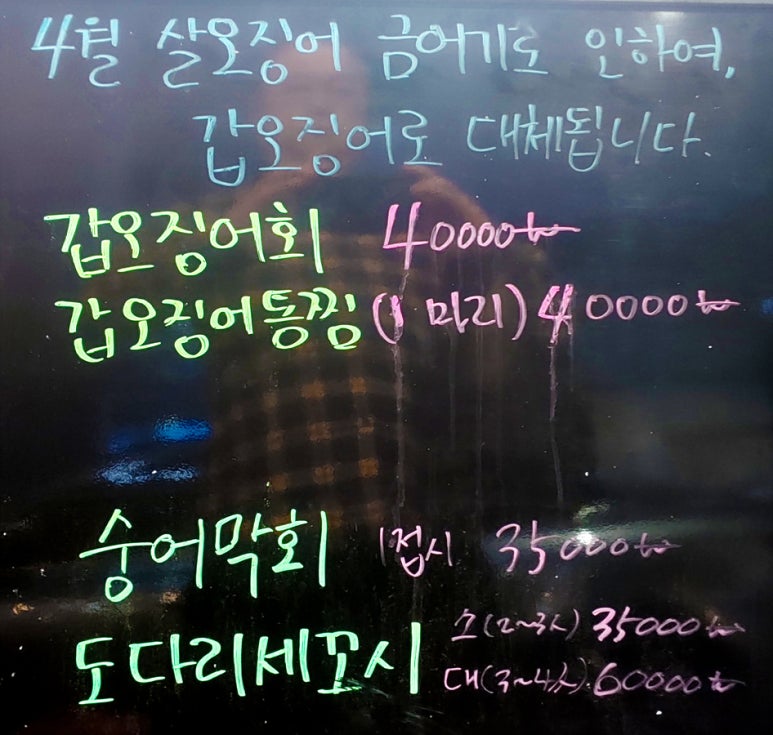 4월 살오징어 금어기로 인하여,
갑오징어로 대체됩니다.
갑오징어회 40000₩
갑오징어통찜 (1 마리) 40000₩
숭어막회 1접시 35000₩
도다리세꼬시 소(2~3人) 35000₩
대(3~4人) 60000₩